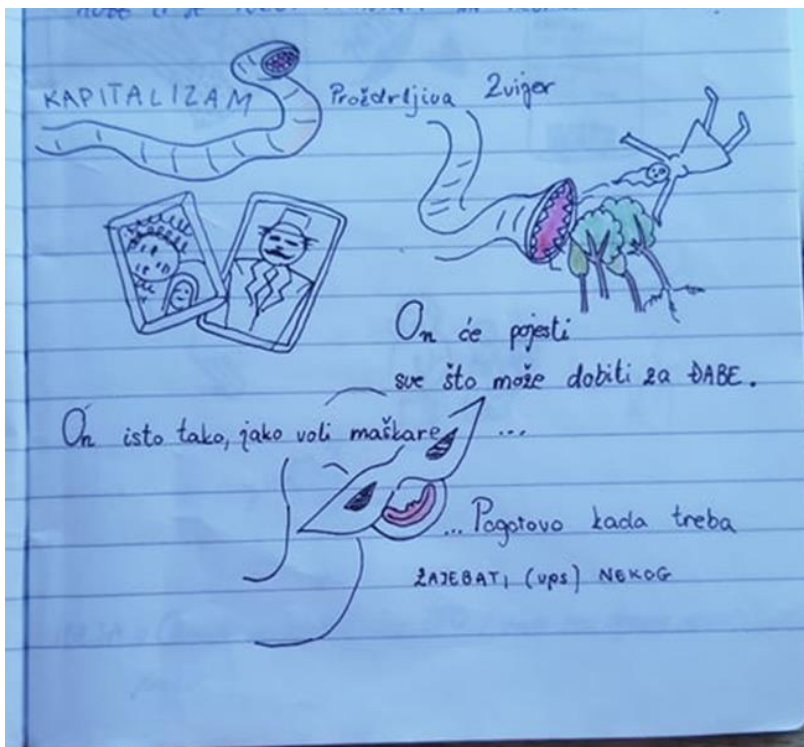 KAPITALIZAM Proždrljiva Zvijer
On će pojesti
sve što može dobiti za ĐABE.
On isto tako, jako voli maškare ...
... Pogotovo kada treba
ZAJEBATI (ups) NEKOG